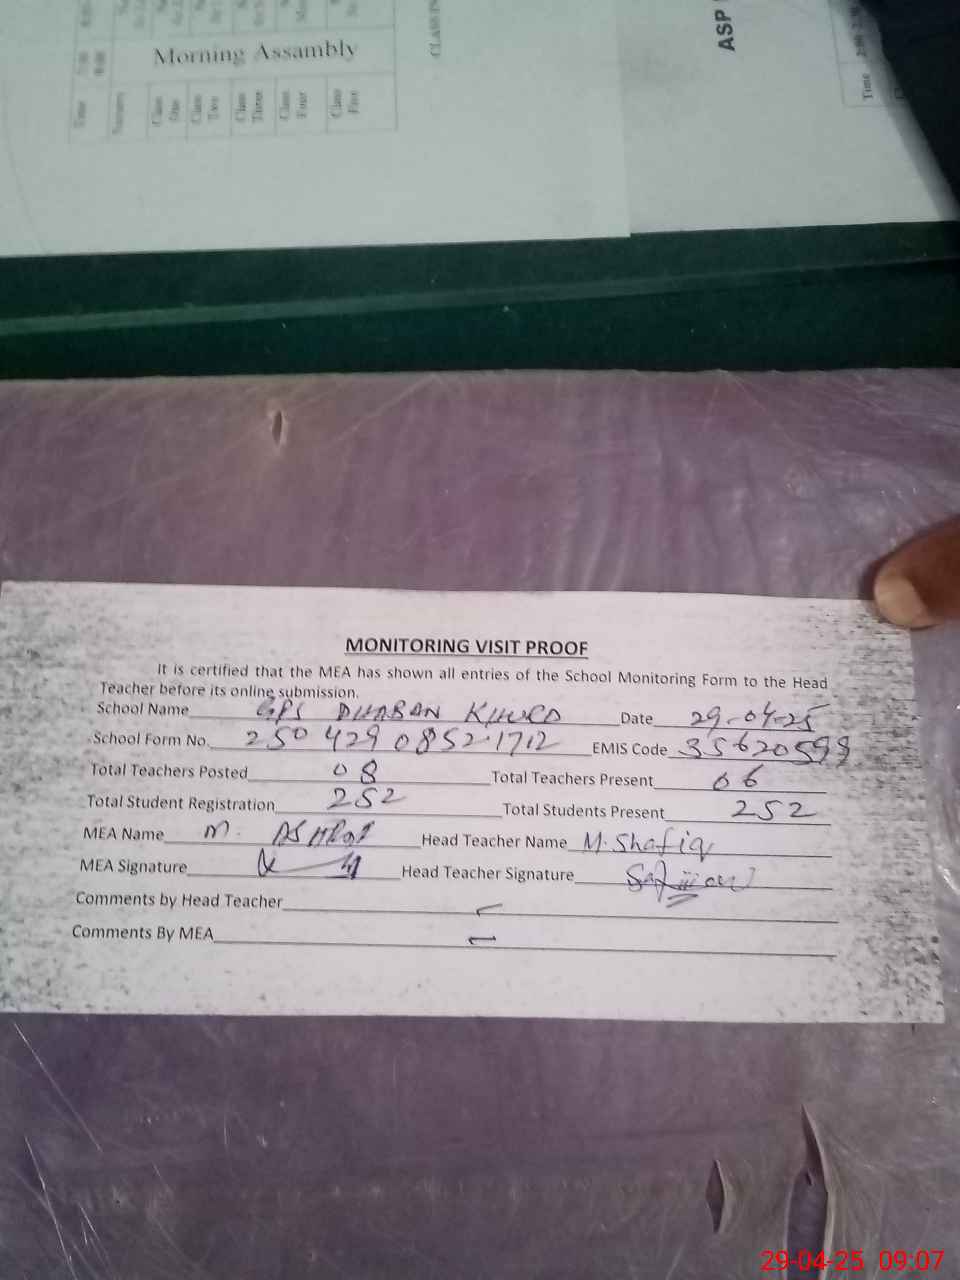 Morning Assambly
Time
Class One
Class Two
Class Three
Class Four
Class Five
ASP
Time
MONITORING VISIT PROOF
It is certified that the MEA has shown all entries of the School Monitoring Form to the Head
Teacher before its online submission.
School Name GPS DHABAN KHURD Date 29-04-25
School Form No. 250 429 0852 1712 EMIS Code 35620599
Total Teachers Posted 08 Total Teachers Present 06
Total Student Registration 252 Total Students Present 252
MEA Name M. ASHRAF Head Teacher Name M. Shafiq
MEA Signature Head Teacher Signature
Comments by Head Teacher
Comments By MEA
29-04-25 09:07